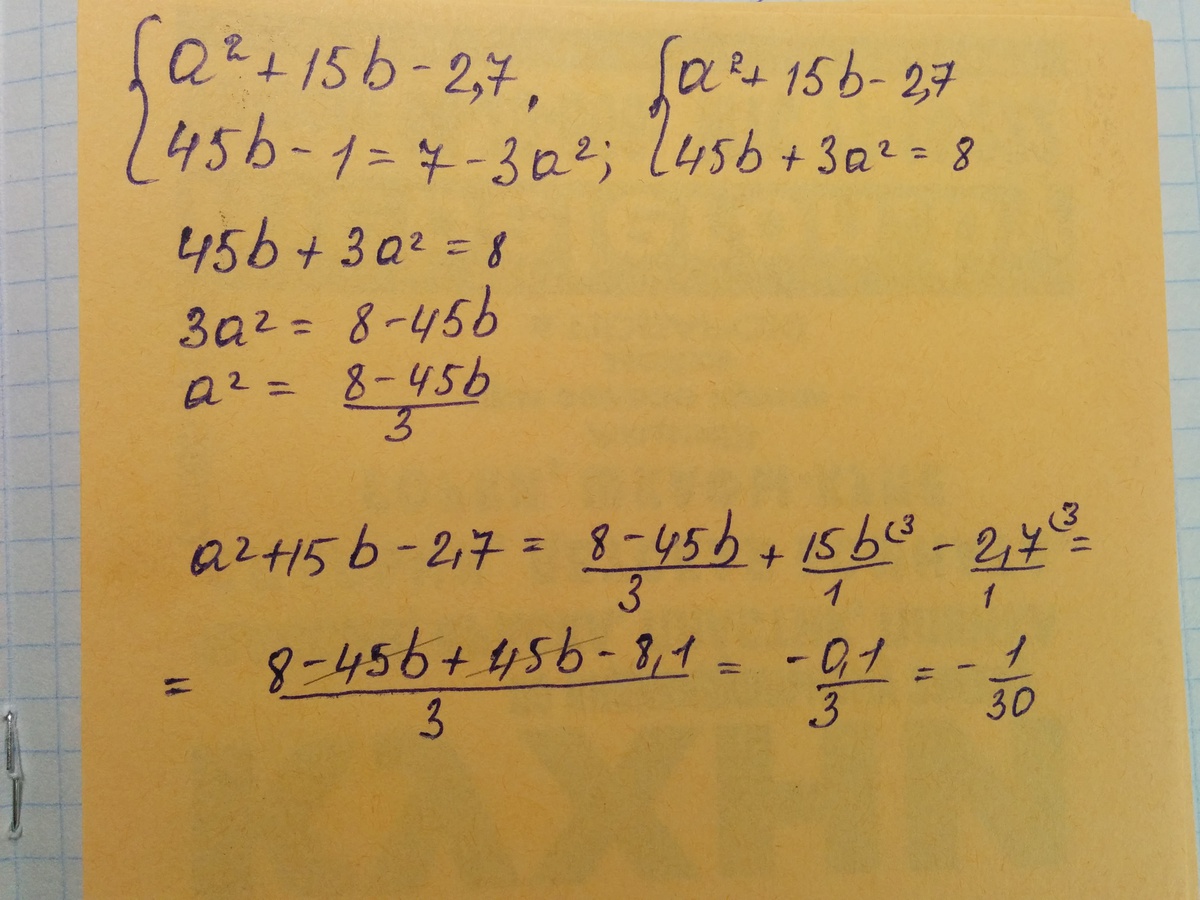 {a² + 15b - 2,7, {a² + 15b - 2,7
45b - 1 = 7 - 3a²; 45b + 3a² = 8
45b + 3a² = 8
3a² = 8 - 45b
a² = (8 - 45b)/3
a² + 15b - 2,7 = (8 - 45b)/3 + 15b⁽³/1 - 2,7⁽³/1 =
= (8 - 45b + 45b - 8,1)/3 = -0,1/3 = - 1/30